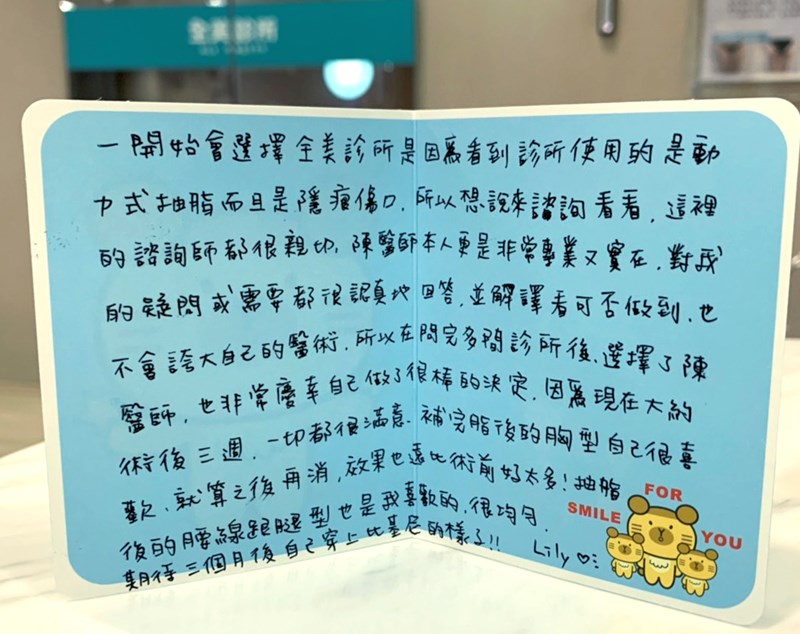 全美診所
一開始會選擇全美診所是因為看到診所使用的是動
力式抽脂而且是隱痕傷口,所以想說來諮詢看看,這裡
的諮詢師都很親切,陳醫師本人更是非常專業又實在,對我
的疑問或需要都很認真地回答,並解譯看可否做到,也
不會誇大自己的醫術,所以在問完多間診所後,選擇了陳
醫師,也非常慶幸自己做了很棒的決定,因為現在大約
術後三週,一切都很滿意,補完脂後的胸型自己很喜
歡,就算之後再消,效果也遠比術前好太多!抽脂
後的腰線跟腿型也是我喜歡的,很均勻.
期待三個月後自己穿上比基尼的樣子!!
Lily ♡
SMILE FOR YOU